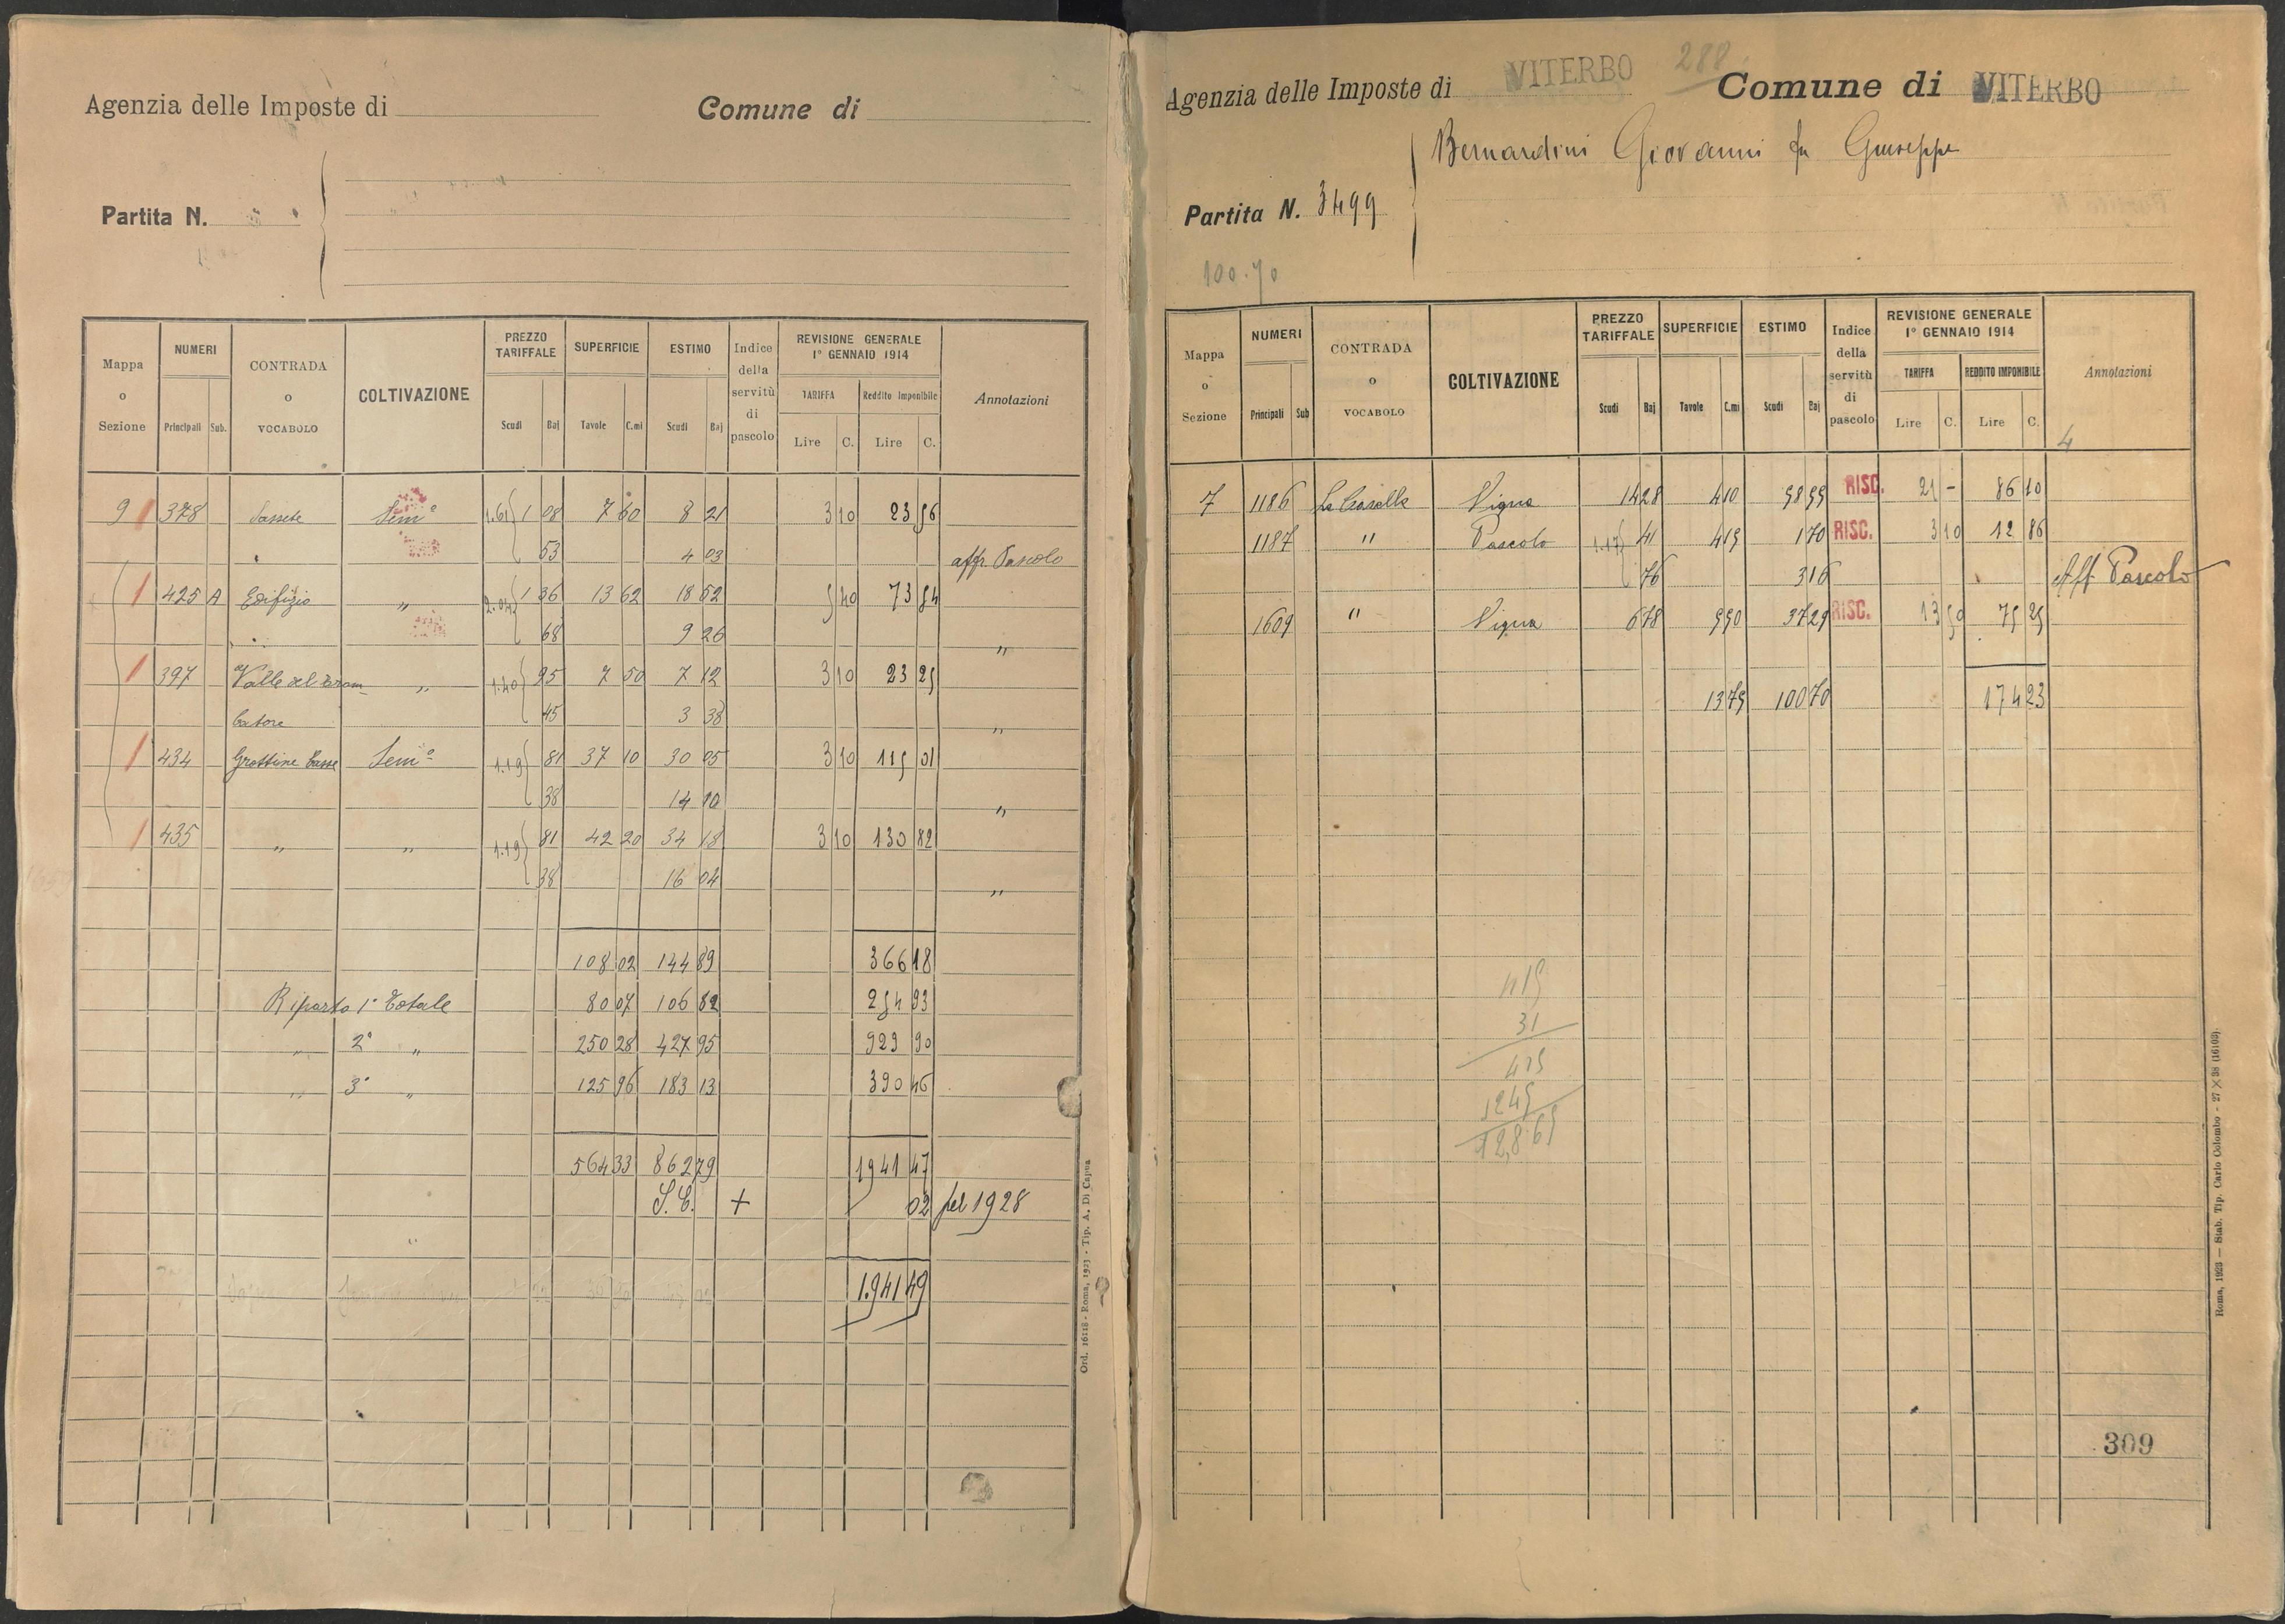 Agenzia delle Imposte di
Comune di
Partita N.
Mappa o Sezione | NUMERI Principali Sub. | CONTRADA o VOCABOLO | COLTIVAZIONE | PREZZO TARIFFALE Scudi Baj | SUPERFICIE Tavole C.mi | ESTIMO Scudi Baj | Indice della servitù di pascolo | REVISIONE GENERALE 1° GENNAIO 1914 TARIFFA Lire C. Reddito Imponibile Lire C. | Annotazioni
9 1 378 Sassete Sem° 1.61 1 08 7 60 8 21 3 10 23 56
53 4 03 aff. Pascolo
1 425 A Edifizio " 2.04 1 36 13 62 18 52 5 40 73 54
68 9 26 "
1 397 Valle del Tram " 1.40 95 7 50 7 12 3 10 23 25
45 3 38 "
1 434 Grottine Basse Sem° 1.19 81 37 10 30 05 3 10 115 01
38 14 10 "
1 435 " " 1.19 81 42 20 34 18 3 10 130 82
38 16 04 "
108 02 144 89 366 18
Riporto 1° Totale 80 07 106 82 254 93
" 2° " 250 28 427 95 929 90
" 3° " 125 96 183 13 390 46
564 33 862 79 1941 47
S.C. + 02 pel 1928
1.941 49
Ord. 16118 - Roma, 1923 - Tip. A. Di Capua
Agenzia delle Imposte di VITERBO
288
Comune di VITERBO
Bernardini Giovanni fu Giuseppe
Partita N. 3499
100.70
Mappa o Sezione | NUMERI Principali Sub | CONTRADA o VOCABOLO | COLTIVAZIONE | PREZZO TARIFFALE Scudi Baj | SUPERFICIE Tavole C.mi | ESTIMO Scudi Baj | Indice della servitù di pascolo | REVISIONE GENERALE 1° GENNAIO 1914 TARIFFA Lire C. REDDITO IMPONIBILE Lire C. | Annotazioni
4
7 1186 Vigna 14 28 4 10 58 55 RISC. 21 - 86 10
1187 " Pascolo 1.17 41 4 15 1 70 RISC. 3 10 12 86
76 3 16 Aff Pascolo
1609 " Vigna 6 78 5 50 37 29 RISC. 13 50 75 25
13 75 100 70 174 23
415
31
415
1245
12,865
309
Roma, 1923 — Stab. Tip. Carlo Colombo - 27 × 38 (16103)